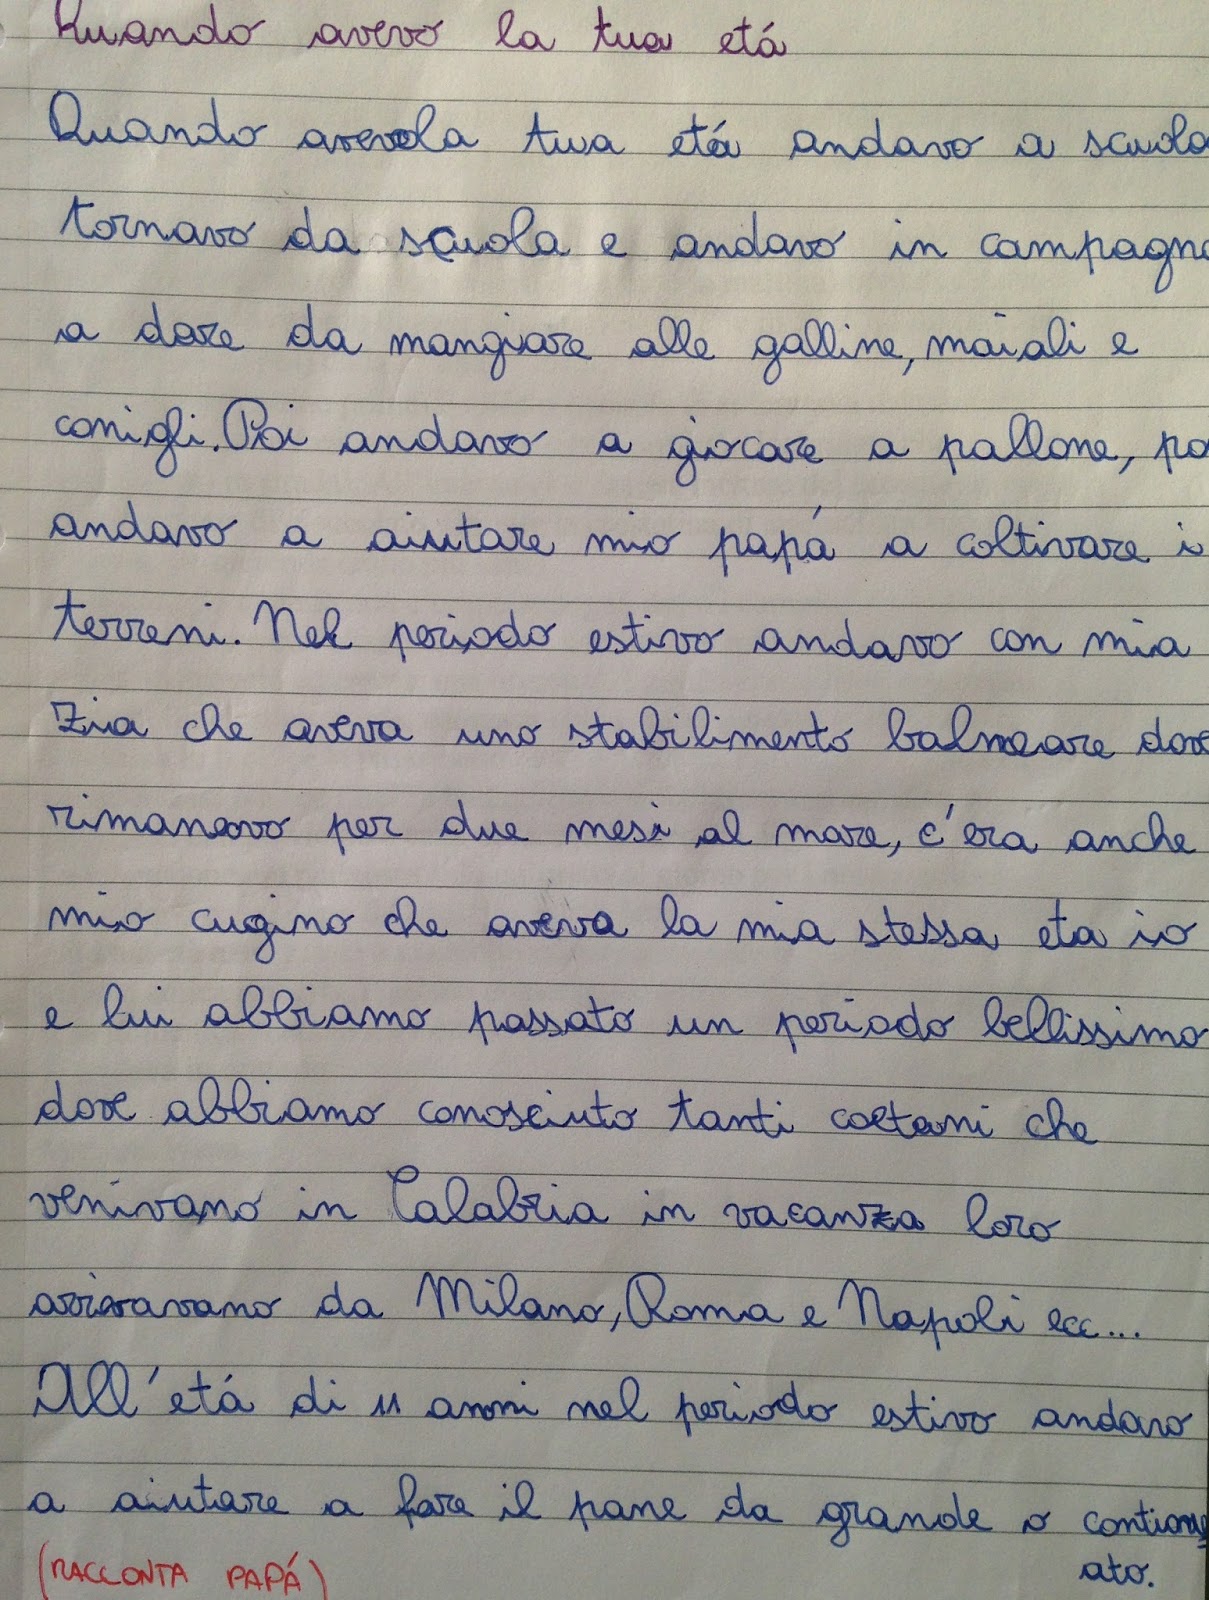 Quando avevo la tua etá
Quando avevola tua etá andavo a scuola
tornavo da scuola e andavo in campagna
a dare da mangiare alle galline, maiali e
conigli. Poi andavo a giocare a pallone, po
andavo a aiutare mio papá a coltivare i
terreni. Nel periodo estivo andavo con mia
zia che aveva uno stabilimento balneare dove
rimanevo per due mesi al mare, c'era anche
mio cugino che aveva la mia stessa eta io
e lui abbiamo passato un periodo bellissimo
dove abbiamo conosciuto tanti coetani che
venivano in Calabria in vacanza loro
arrivavano da Milano, Roma e Napoli ecc...
All'etá di 11 anni nel periodo estivo andavo
a aiutare a fare il pane da grande o continu
ato.
(RACCONTA PAPÁ)